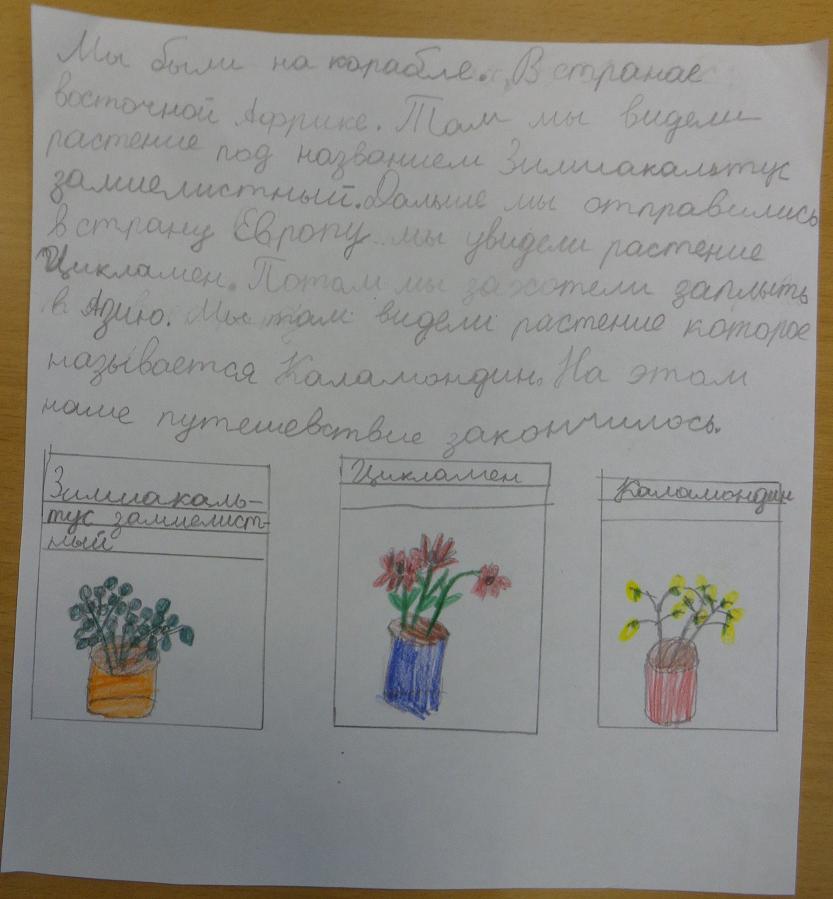 Мы были на корабле. В странае
восточной Африке. Там мы видели
растение под названием Зимиакальтус
замиелистный. Дальше мы отправились
в страну Европу мы увидели растение
Цикламен. Потом мы захотели заплыть
в Азию. Мы там видели растение которое
называется Каламондин. На этом
наше путешевствие закончилось.
Зимиакаль-
тус замиелист-
ный
Цикламен
Каламондин